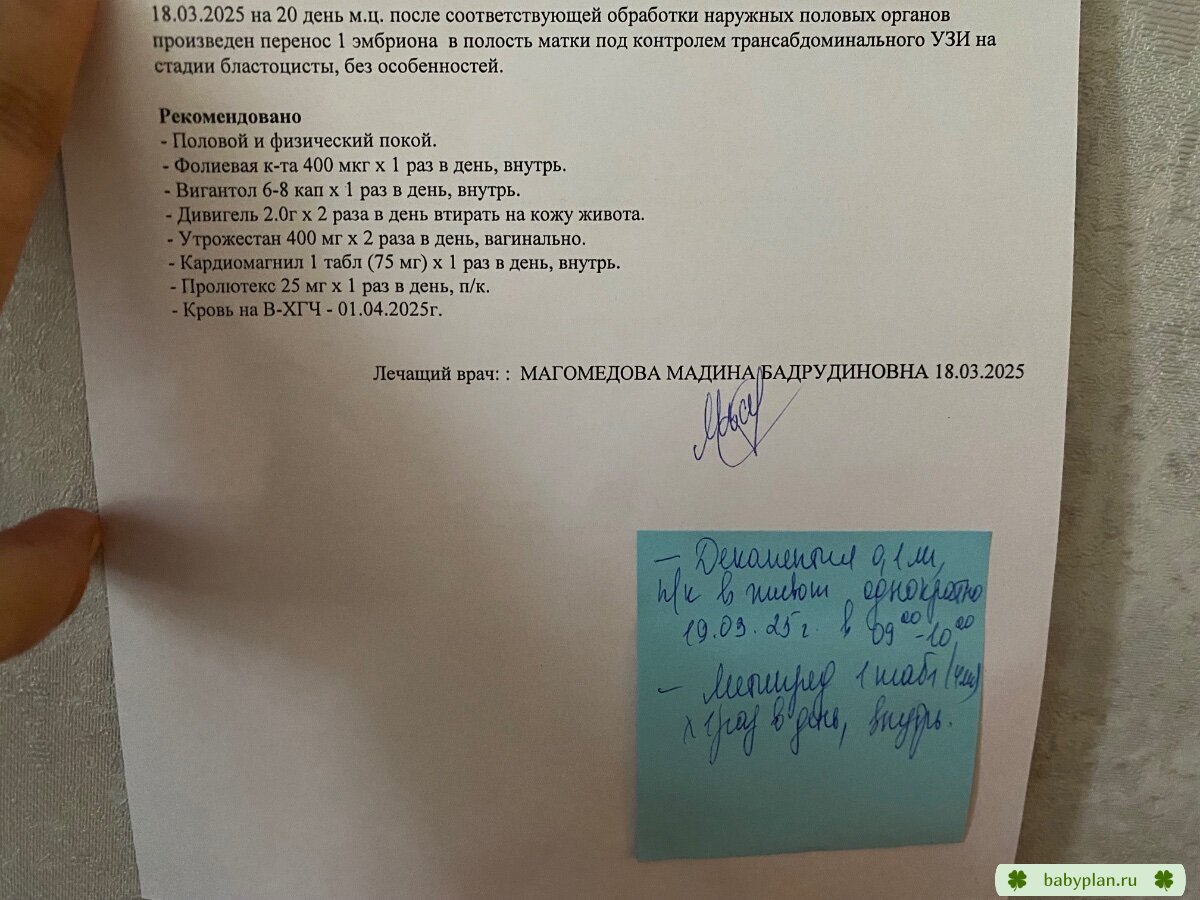 18.03.2025 на 20 день м.ц. после соответствующей обработки наружных половых органов
произведен перенос 1 эмбриона в полость матки под контролем трансабдоминального УЗИ на
стадии бластоцисты, без особенностей.
Рекомендовано
- Половой и физический покой.
- Фолиевая к-та 400 мкг х 1 раз в день, внутрь.
- Вигантол 6-8 кап х 1 раз в день, внутрь.
- Дивигель 2.0г х 2 раза в день втирать на кожу живота.
- Утрожестан 400 мг х 2 раза в день, вагинально.
- Кардиомагнил 1 табл (75 мг) х 1 раз в день, внутрь.
- Пролютекс 25 мг х 1 раз в день, п/к.
- Кровь на В-ХГЧ - 01.04.2025г.
Лечащий врач: : МАГОМЕДОВА МАДИНА БАДРУДИНОВНА 18.03.2025
– Декапептил 0,1 мг,
п/к в живот однократно
19.03.25г. в 09⁰⁰-10⁰⁰
– Метипред 1 табл (4мг)
х 1раз в день, внутрь.
babyplan.ru